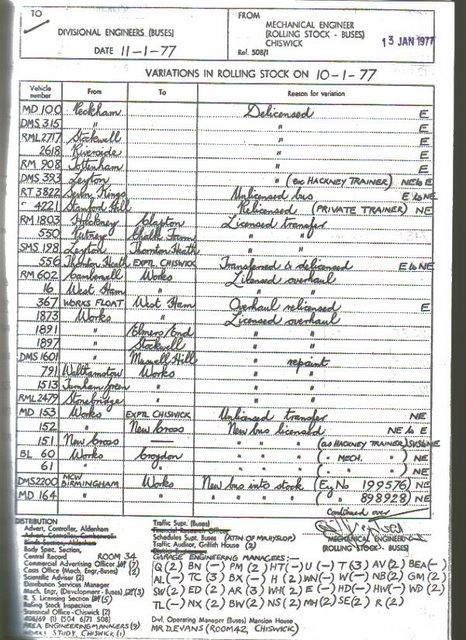 TO
DIVISIONAL ENGINEERS (BUSES)
DATE 11-1-77
FROM
MECHANICAL ENGINEER
(ROLLING STOCK - BUSES)
CHISWICK
Ref. 508/1
13 JAN 1977
VARIATIONS IN ROLLING STOCK ON 10-1-77
Vehicle number From To Reason for variation
MD 100 Peckham Delicensed E
DMS 315 " " E
RML 2717 Stockwell " E
2618 Riverside " E
RM 908 Tottenham " E
DMS 393 Leyton " (ex HACKNEY TRAINER) NE to E
RT 3822 Seven Kings Unlicensed bus E to NE
" 4221 Relicensed (PRIVATE TRAINER) NE
RM 1803 Hackney Clapton Licensed transfer
550 Putney Chalk Farm " "
SMS 198 Leyton Thornton Heath " "
556 Thornton Heath EXPTL CHISWICK Transferred & delicensed E to NE
RM 602 Camberwell Works Licensed overhaul
16 West Ham " " "
367 WORKS FLOAT West Ham Overhaul relicensed E
1873 Works " Licensed overhaul
1891 " Elmers End " "
1897 " Stockwell " "
DMS 1601 " Muswell Hill " repaint
791 Walthamstow Works " "
1513 Turnham Green " " "
RML 2479 Stonebridge " " "
MD 153 Works EXPTL CHISWICK Unlicensed transfer NE
152 " New Cross New bus licensed NE to E
151 New Cross — " " " (as HACKNEY TRAINER) NE
BL 60 Works Croydon " " " ( " MECH. " ) NE
61 " " " " " ( " " " ) NE
DMS 2200 MCW BIRMINGHAM Works New bus into stock (Eng No 199576) NE
MD 164 " " " " " ( " " 898928) NE
Continued over
MECHANICAL ENGINEER
(ROLLING STOCK - BUSES)
DISTRIBUTION
Advert. Controller, Aldenham
Body Spec. Section,
Central Record ROOM 34
Commercial Advertising Officer
Costs Office (Mech. Engr-Buses) (2)
Scientific Adviser (2)
Distribution Services Manager
Mech. Engr, (Development - Buses) (3)
R. S. Licensing Section
Rolling Stock Inspection
Statistical Office - Chiswick (2)
408/69 (1) (504 6/71 508)
AREA ENGINEERING MANAGERS (9)
WORK STUDY, CHISWICK (1)
Traffic Supt. (Buses)
Schedules Supt. (Buses)
Traffic Auditor, Griffith House (2)
GARAGE ENGINEERING MANAGERS:—
Q (2) BN (—) PM (2) HT (—) U (—) T (3) AV (2) BEA (—)
AL (—) TC (3) BX (—) H (2) WN (—) W (—) NB (2) GM (2)
SW (2) ED (2) AR (3) WH (2) E (—) HD (—) HW (—) WD (2)
TL (—) NX (2) BW (2) NS (2) MH (2) SE (2) R (2)
Divl. Operating Manager (Buses) Mansion House
MR D. EVANS (ROOM 42, CHISWICK)